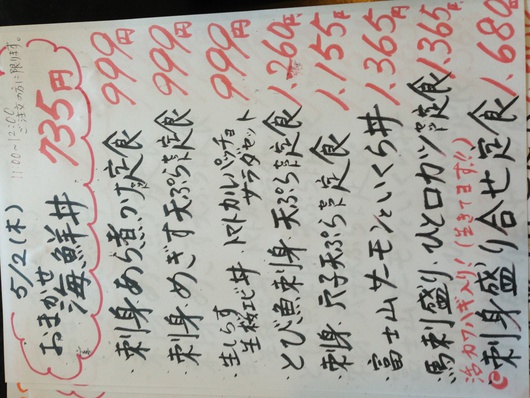 11:00〜12:00
ご注文の方に限ります。
5/2(木)
おまかせ
海鮮丼 735円
・刺身 あら煮つけ定食 999円
・刺身・めぎす天ぷら定食 999円
・生しらす
生桜エビ丼 トマトカルパッチョ
サラダセット 999円
・とび魚刺身 天ぷら定食 1.260円
・刺身 穴子天ぷら定食 1.155円
・富士山サーモンといくら丼 1.365円
・馬刺盛り・ひと口カツ定食 1365円
活カワハギ入り!(生きてます!!)
刺身盛り合せ定食 1.680